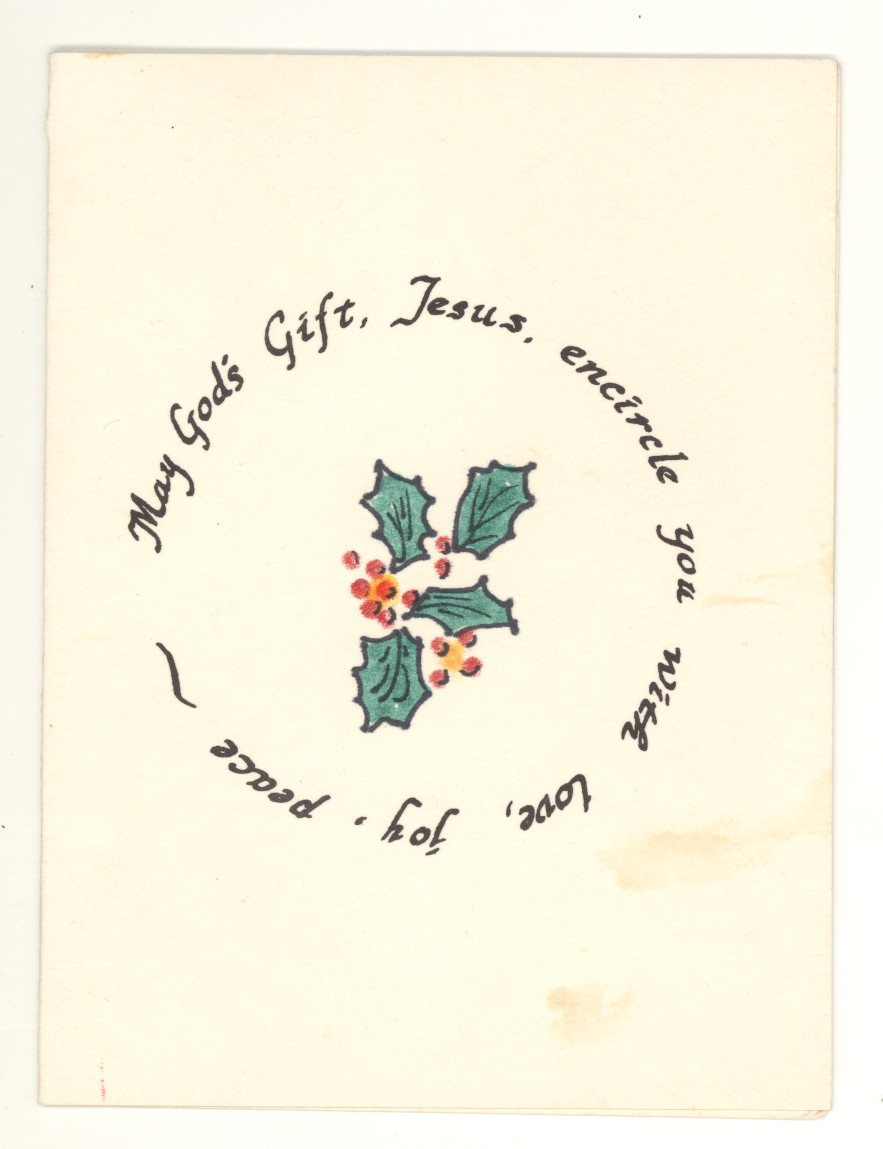 May God's Gift, Jesus, encircle you with love, joy, peace ~